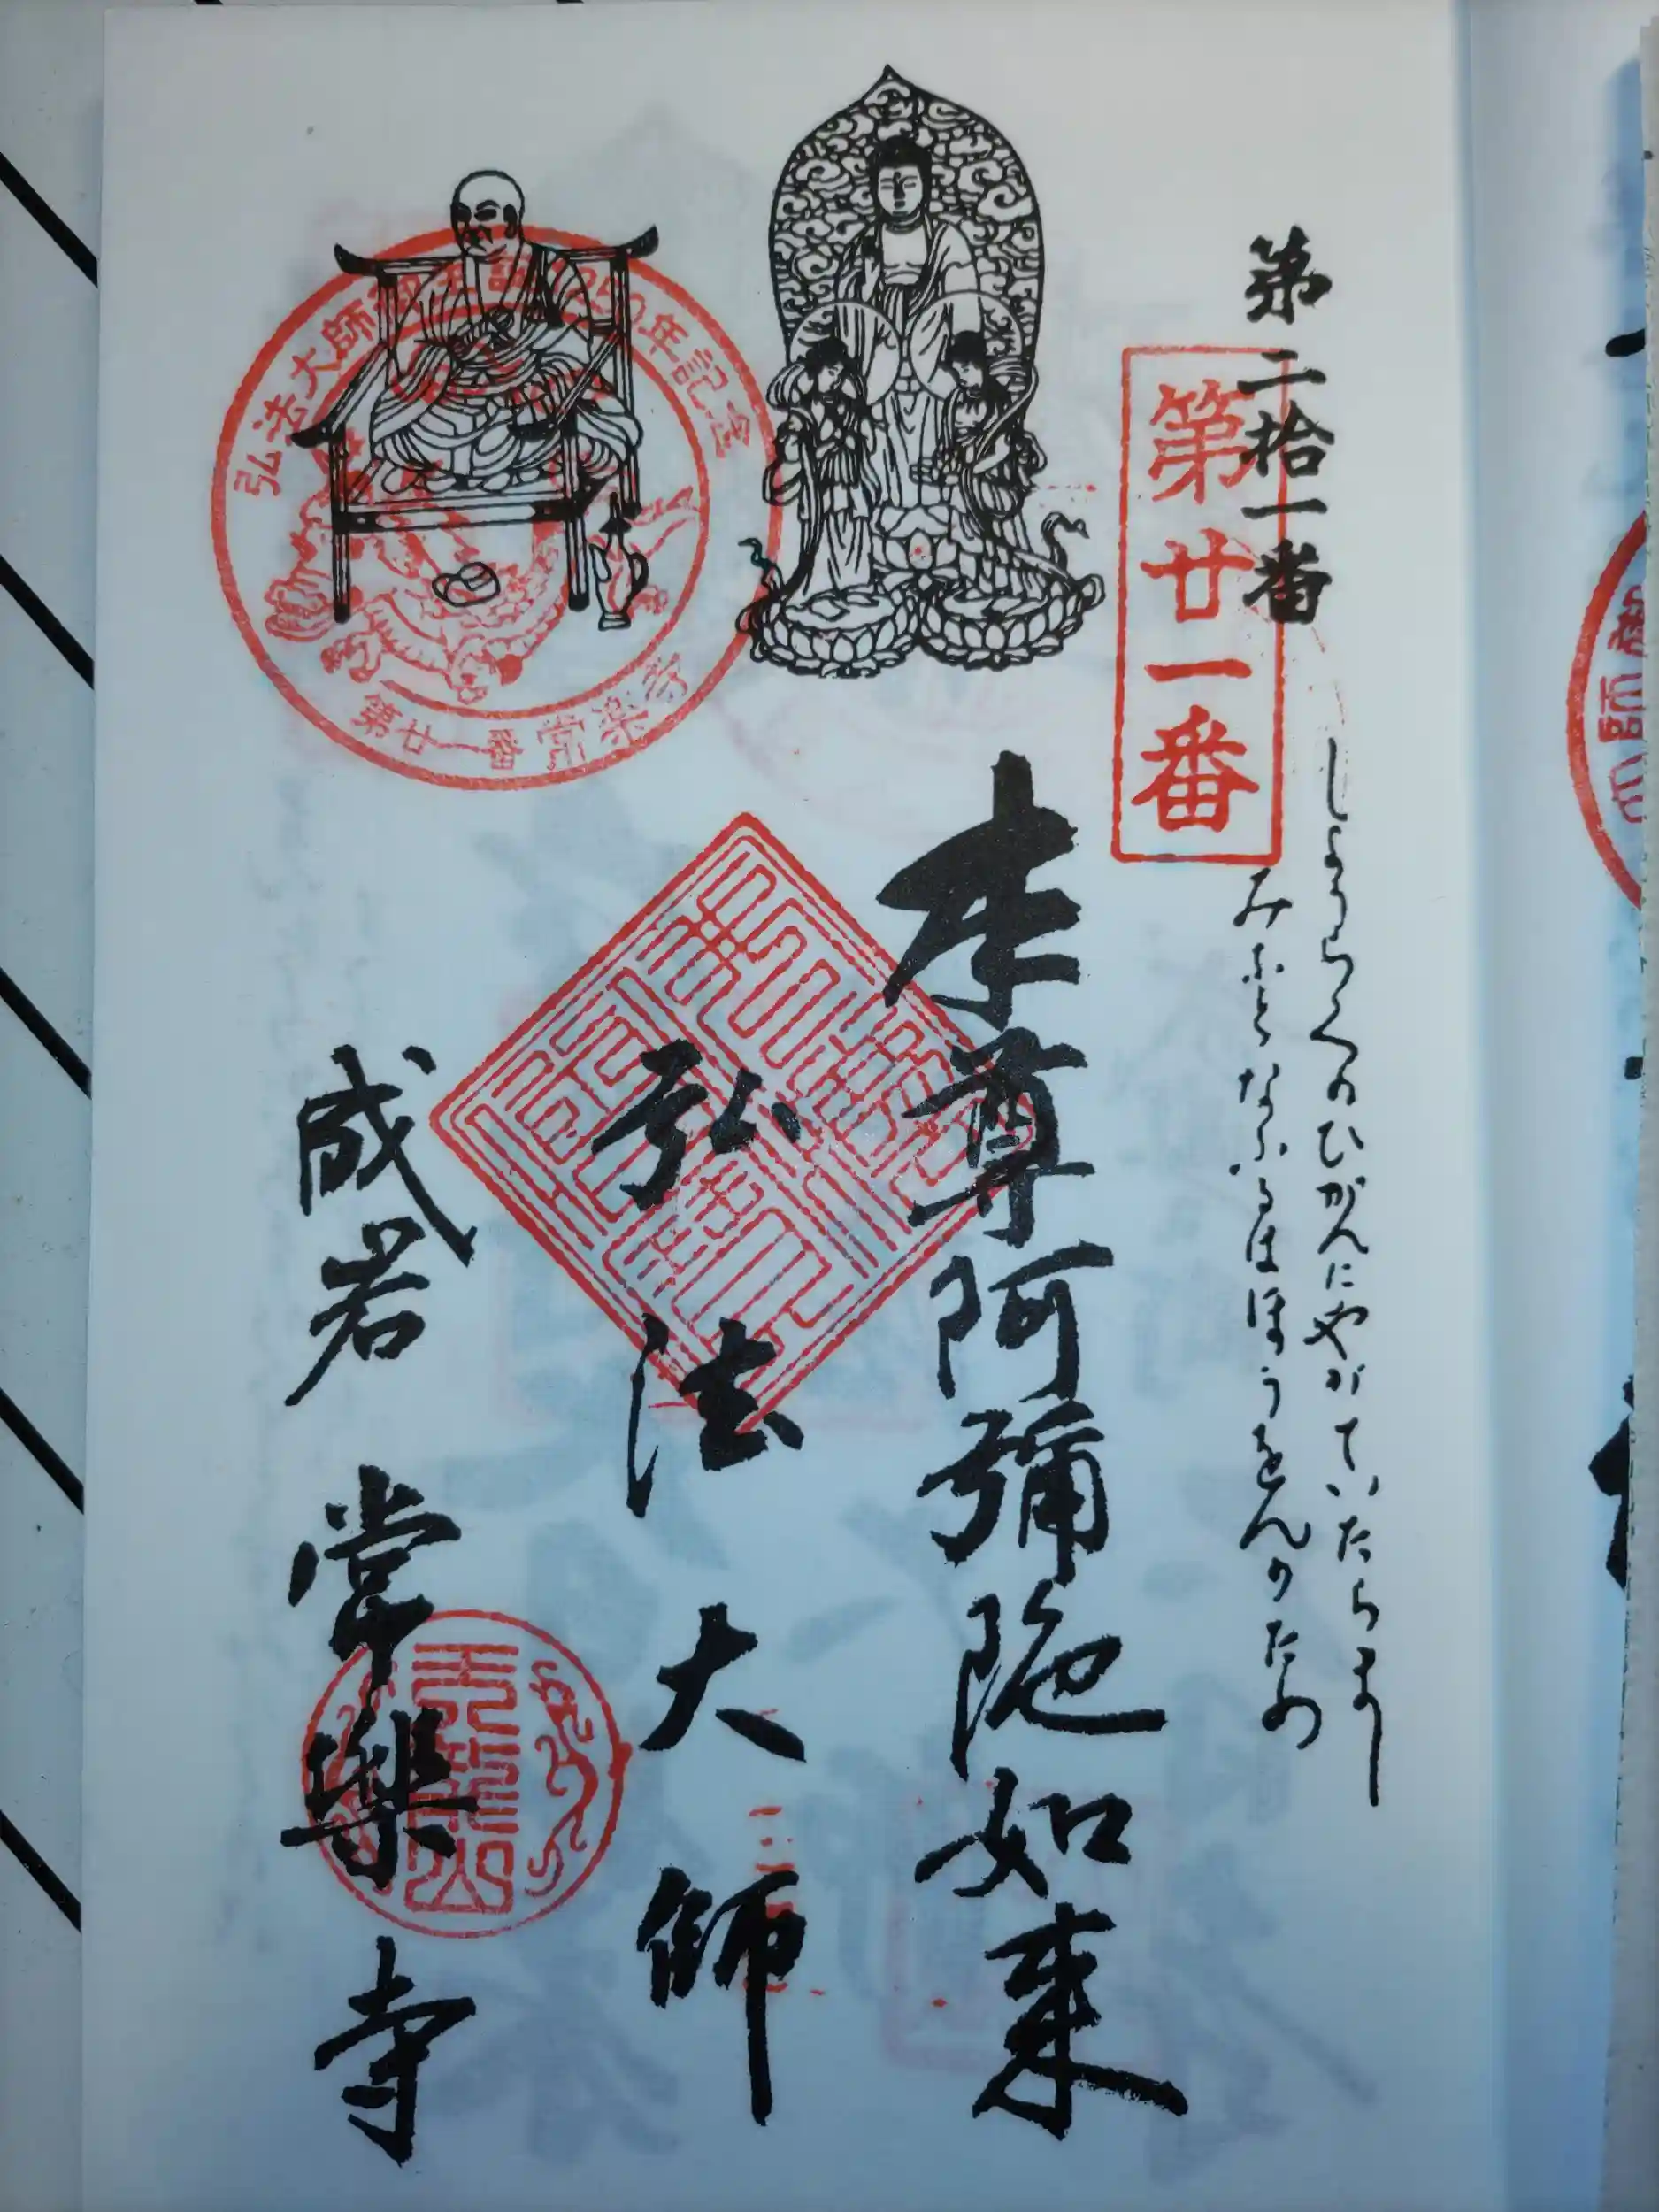 第二拾一番
第廿一番
しようらくのひがんにやがていたらまし
みをとなふるはほうをんのため
本尊阿彌陀如来
弘法大師
成岩 常樂寺
弘法大師御生誕1250年記念
第廿一番 常楽寺
天龍山